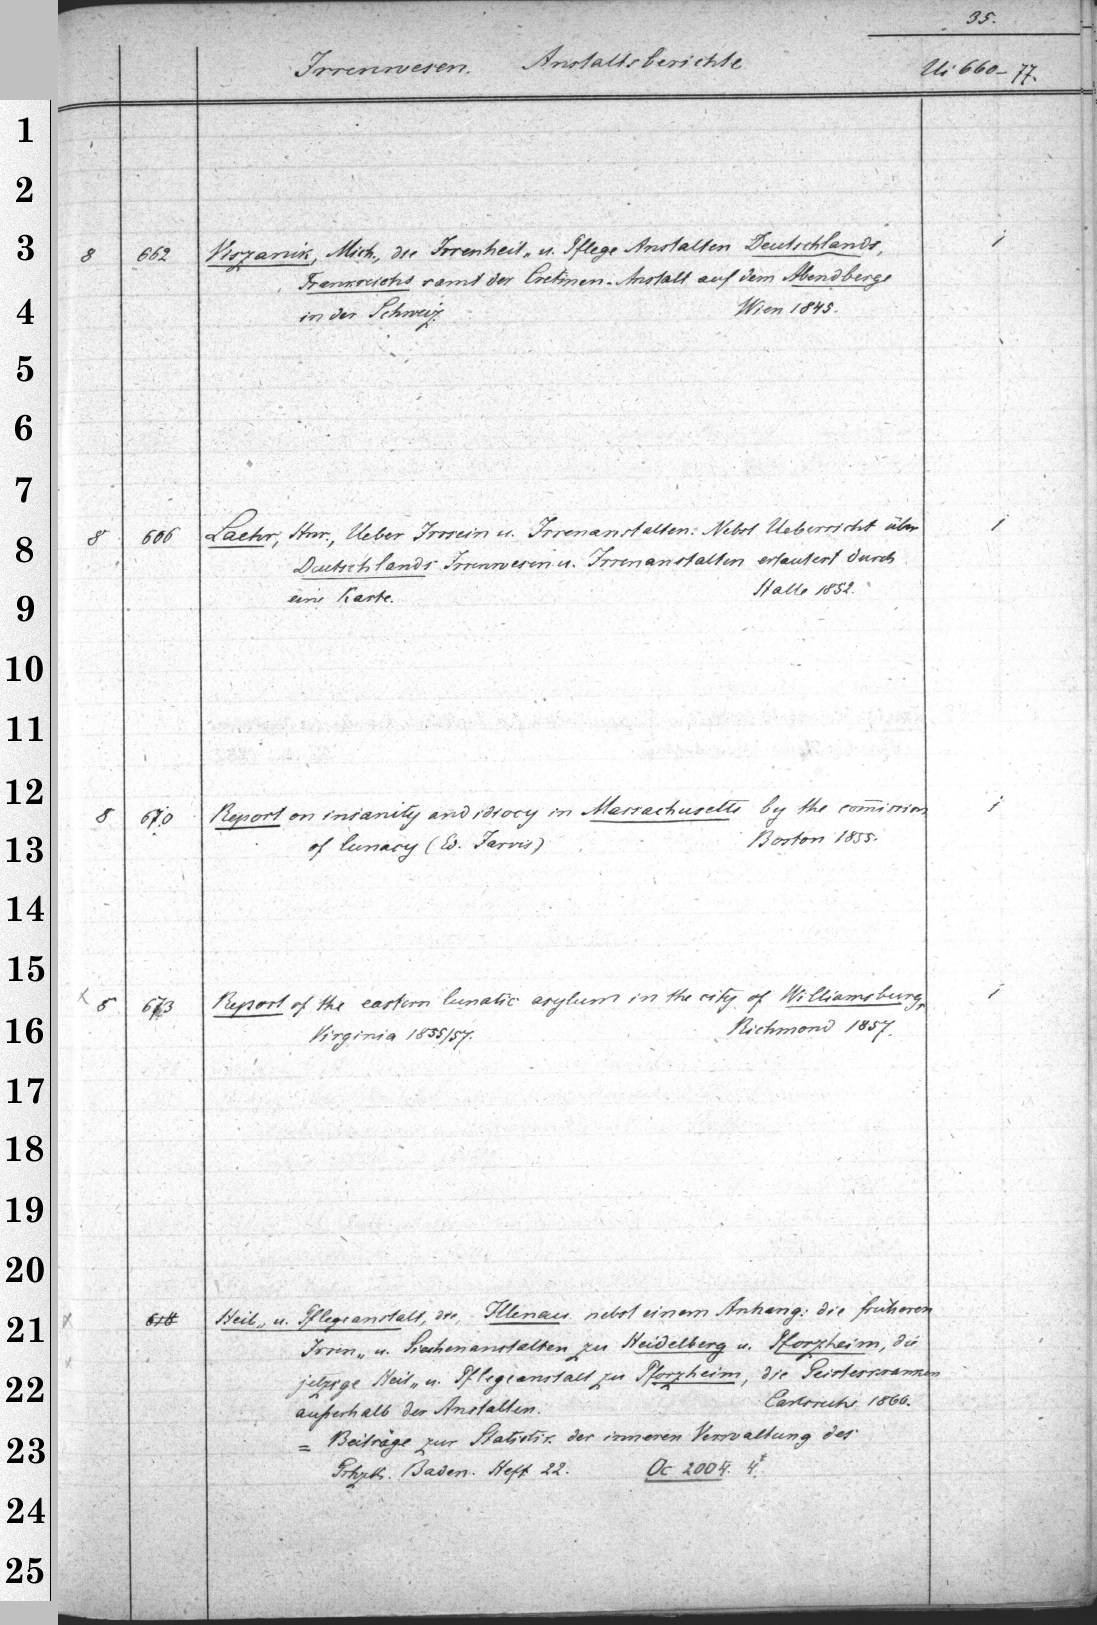 35.
Irrenwesen. Anstaltsberichte Ui 660-77.
1
2
3 8 662 Viszanik, Mich., die Irrenheil- u. Pflege Anstalten Deutschlands, i
Frankreichs samt der Cretinen-Anstalt auf dem Abendberge
4 in der Schweiz. Wien 1845.
5
6
7
8 8 666 Laehr, Hnr., Ueber Irrsein u. Irrenanstalten: Nebst Uebersicht über i
Deutschlands Irrenwesen u. Irrenanstalten erläutert durch
9 eine Karte. Halle 1852.
10
11
12 8 670 Report on insanity and idiocy in Massachusetts by the comission i
13 of lunacy (Ed. Jarvis) Boston 1855.
14
15 8 673 Report of the eastern lunatic asylum in the city of Williamsburg, i
16 Virginia 1855/57. Richmond 1857.
17
18
19
20
21 Heil- u. Pflegeanstalt, die, Illenau nebst einem Anhang: die früheren
Irren- u. Siechenanstalten zu Heidelberg u. Pforzheim, die
22 jetzige Heil- u. Pflegeanstalt zu Pforzheim, die Geisteskranken
außerhalb der Anstalten. Carlsruhe 1866.
23 = Beiträge zur Statistik der inneren Verwaltung des
Grhzth. Baden. Heft 22. Oc 2004. 4°
24
25